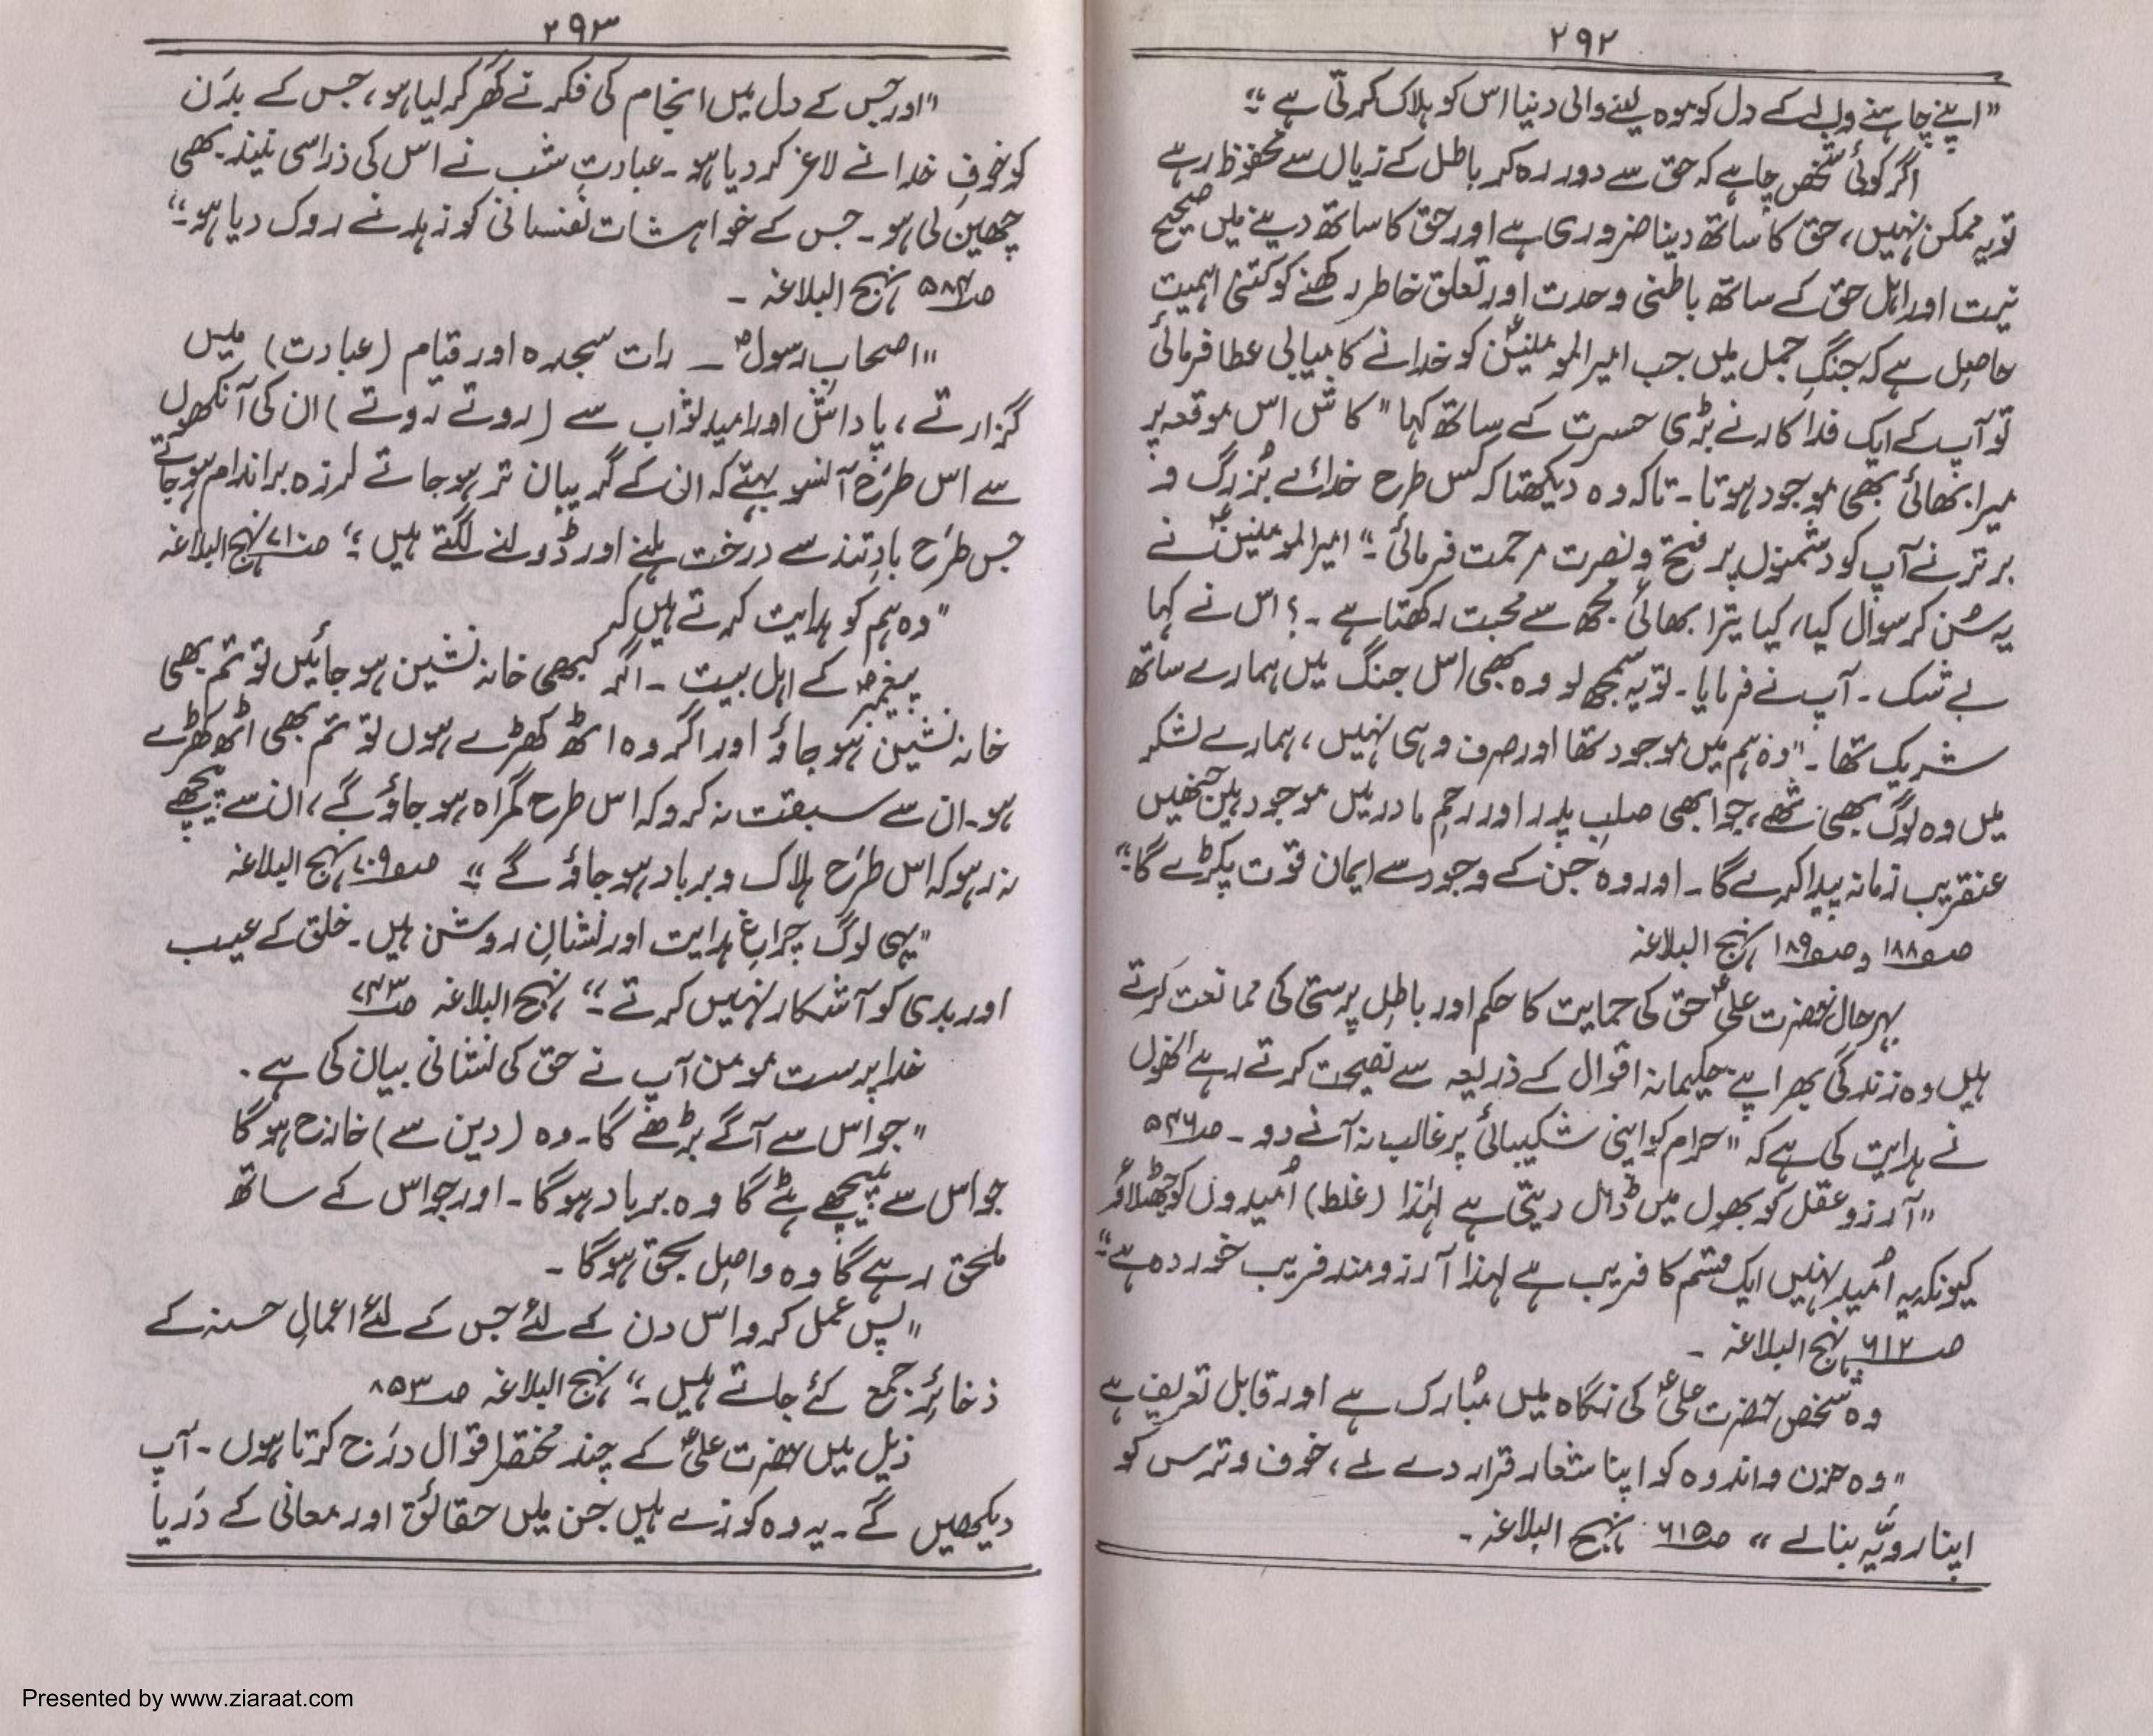 ۲۹۲
"اپنے چاہنے والے کے دل کو موہ لینے والی دنیا اس کو ہلاک کرتی ہے"
اگر کوئی شخص چاہے کہ حق سے دور رہ کر باطل کے زیاں سے محفوظ رہے
تو یہ ممکن نہیں، حق کا ساتھ دینا ضروری ہے اور حق کا ساتھ دینے میں صحیح
نیت اور اہل حق کے ساتھ باطنی وحدت اور تعلق خاطر رکھنے کو کتنی اہمیت
حاصل ہے کہ جنگِ جمل میں جب امیر المومنینؑ کو خدا نے کامیابی عطا فرمائی
تو آپ کے ایک فداکار نے بڑی حسرت کے ساتھ کہا "کاش اس موقعہ پر
میرا بھائی بھی موجود ہوتا ۔ تاکہ وہ دیکھتا کہ کس طرح خدائے بُزرگ و
برتر نے آپ کو دشمنوں پر فتح و نصرت مرحمت فرمائی ۔" امیر المومنینؑ نے
یہ سُن کر سوال کیا، کیا تیرا بھائی مجھ سے محبت رکھتا ہے ۔؟ اس نے کہا
بے شک ۔ آپ نے فرمایا ۔ تو یہ سمجھ لو وہ بھی اس جنگ میں ہمارے ساتھ
شریک تھا ۔ "وہ ہم میں موجود تھا اور صرف وہی نہیں، ہمارے لشکر
میں وہ لوگ بھی تھے، جو ابھی صلبِ پدر اور رحمِ مادر میں موجود ہیں جنھیں
عنقریب زمانہ پیدا کرے گا ۔ اور وہ جن کے وجود سے ایمان قوّت پکڑے گا"
صـ۱۸۸ و صـ۱۸۹ نہج البلاغہ
بہر حال حضرت علیؑ حق کی حمایت کا حکم اور باطل پرستی کی ممانعت کرتے
ہیں وہ زندگی بھر اپنے حکیمانہ اقوال کے ذریعہ سے نصیحت کرتے رہے انھوں
نے ہدایت کی ہے کہ "حرام کو اپنی شکیبائی پر غالب نہ آنے دو ۔ صـ۵۴۶
"آرزو عقل کو بھول میں ڈال دیتی ہے لہٰذا (غلط) اُمیدوں کو جھٹلاؤ
کیونکہ یہ اُمید نہیں ایک قسم کا فریب ہے لہذا آرزومند فریب خوردہ ہے"
صـ۶۱۲ نہج البلاغہ ۔
وہ شخص حضرت علیؑ کی نگاہ میں مُبارک ہے اور قابل تعریف ہے
"وہ حزن و اندوہ کو اپنا شعار قرار دے لے، خوف و ترس کو
اپنا رویّہ بنالے" صـ۶۱۵ نہج البلاغہ ۔
۲۹۳
"اور جس کے دل میں انجام کی فکر نے گھر کر لیا ہو، جس کے بدن
کو خوفِ خدا نے لاغر کر دیا ہو ۔ عبادتِ شب نے اس کی ذرا سی نیند بھی
چھین لی ہو ۔ جس کے خواہشات نفسانی کو زہد نے روک دیا ہو ۔"
صـ۵۸۴ نہج البلاغہ ۔
"اصحاب رسولؐ ۔ رات سجدہ اور قیام (عبادت) میں
گزارتے، پاداش اور امید ثواب سے (روتے روتے) ان کی آنکھوں
سے اس طرح آنسو بہتے کہ ان کے گریبان تر ہو جاتے لرزہ براندام ہو جاتے
جس طرح بادِ تند سے درخت ہلنے اور ڈولنے لگتے ہیں ۔" صـ۷۱۰ نہج البلاغہ
"وہ ہم کو ہدایت کرتے ہیں کہ
پیغمبرؐ کے اہل بیت ۔ اگر کبھی خانہ نشین ہو جائیں تو تم بھی
خانہ نشین ہو جاؤ اور اگر وہ اٹھ کھڑے ہوں تو تم بھی اٹھ کھڑے
ہو ۔ ان سے سبقت نہ کرو کہ اس طرح گمراہ ہو جاؤ گے، ان سے پیچھے
نہ رہو کہ اس طرح ہلاک و برباد ہو جاؤ گے" صـ۷۰۹ نہج البلاغہ
"یہی لوگ چراغِ ہدایت اور نشانِ روشن ہیں ۔ خلق کے عیب
اور بدی کو آشکار نہیں کرتے ۔" نہج البلاغہ صـ۷۴۳
خدا پرست مومن آپ نے حق کی نشانی بیان کی ہے ۔
"جو اس سے آگے بڑھے گا ۔ وہ (دین سے) خارج ہو گا
جو اس سے پیچھے ہٹے گا وہ برباد ہوگا ۔ اور جو اس کے ساتھ
ملحق رہے گا وہ واصل بحق ہوگا ۔
"پس عمل کرو اس دن کے لئے جس کے لئے اعمالِ حسنہ کے
ذخائر جمع کئے جاتے ہیں ۔" نہج البلاغہ صـ۸۵۳
ذیل میں حضرت علیؑ کے چند مختصر اقوال درج کرتا ہوں ۔ آپ
دیکھیں گے ۔ یہ وہ کوزے ہیں جن میں حقائق اور معانی کے دریا
Presented by www.ziaraat.com